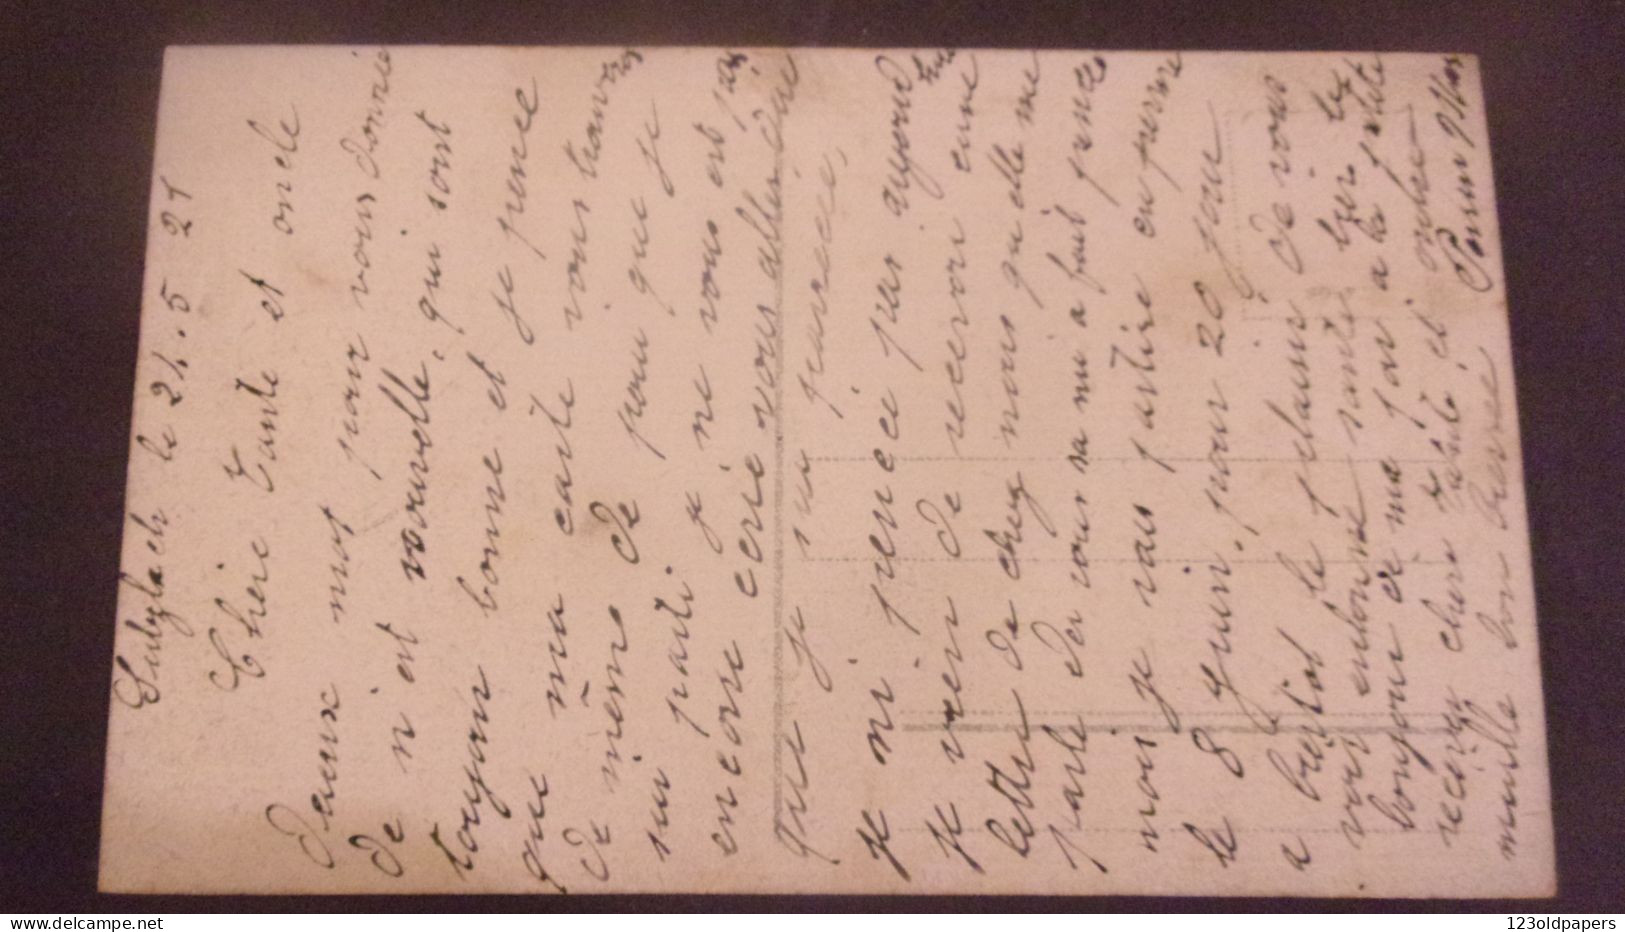 Sulzbach le 24.5 21
Chère Tante et oncle
Deaux mot pour vous donnie
de n'est nouvelle. qui sont
toujour bonne et je pence
que ma carte vous trouv
de mème de pour que je
sui parti. je ne vous est pas
encore ecrie vous aller dire
que je sui parecée,
je ni pencée pas aujourd
je vien de recevoir eune
lettre de chez nous qu elle me
parle de vous sa mi a fait pencé
mois je vais partire en perme
le 8 juin. pour 20 jour
a bientot le plaisir de vous
voir enbonne santé
bonjour de ma par a la petite
recever cheri Tante et oncle
mille bon baisse
123oldpapers